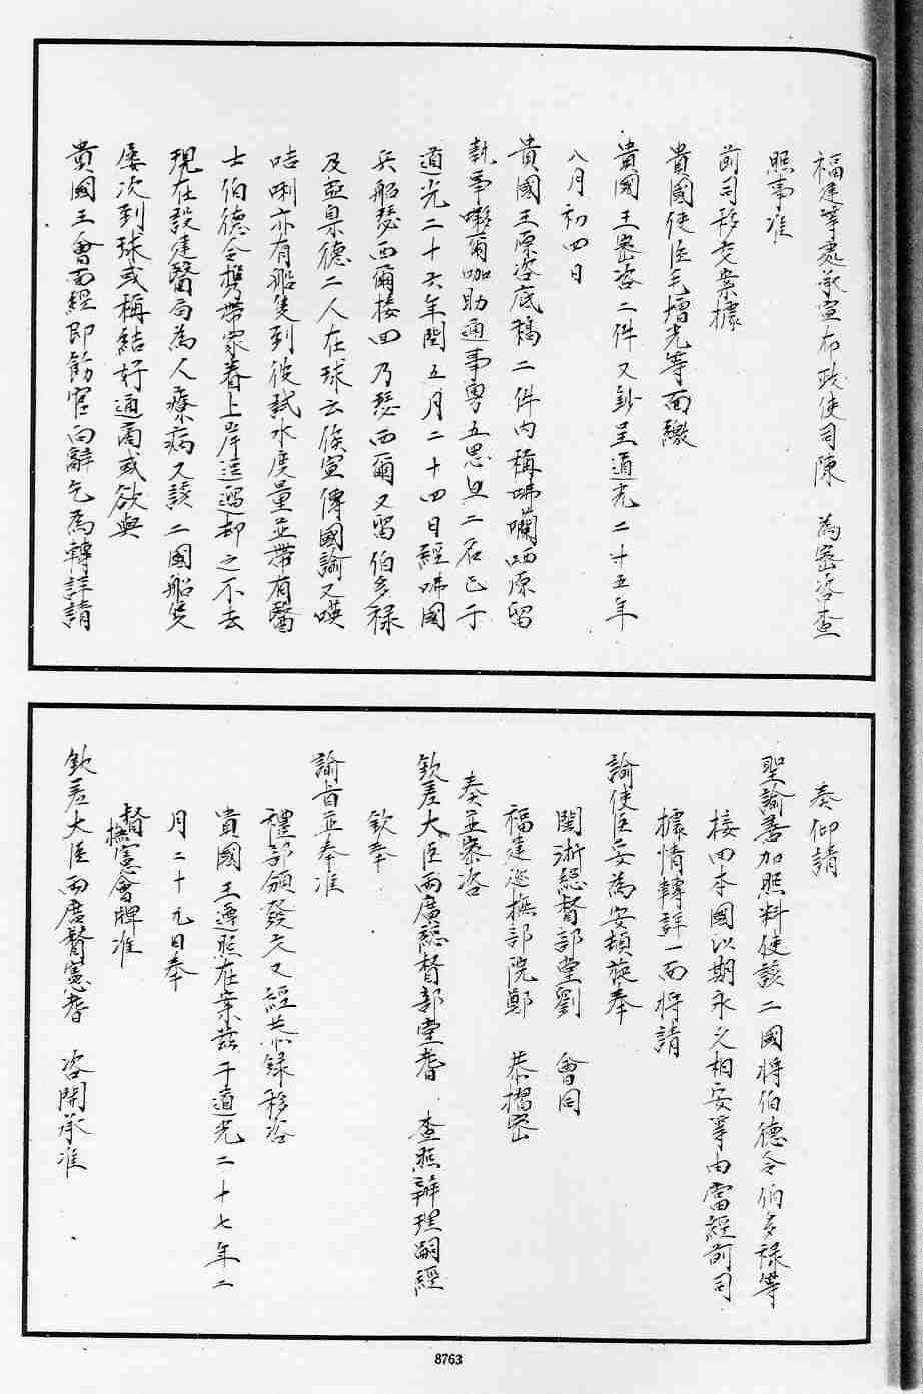 福建等處承宣布政使司陳　為密咨查
照事准
前司移交案據
貴國使臣毛增光等面繳
貴國王密咨二件又鈔呈道光二十五年
八月初四日
貴國王原咨底稿二件內稱咈囒哂原留
執事嘞爾咖助通事粵五思旦二名已于
道光二十六年閏五月二十四日經咈國
兵船瑟西爾接回乃瑟西爾又留伯多祿
及亞臬德二人在球云俟宣傳國諭又㗆
咭唎亦有船隻到彼試水度量並帶有醫
士伯德令攜帶家眷上岸逗遛却之不去
現在設建醫局為人療病又該二國船隻
屢次到球或稱結好通商或欲與
貴國王會面經即飭官向辭乞為轉詳請
奏仰請
聖諭善加照料使該二國將伯德令伯多祿等
接回本國以期永久相安等由當經前司
據情轉詳一面將請
諭使臣妥為安頓旋奉
閩浙總督部堂劉　會同
福建巡撫部院鄭　恭摺密
奏並密咨
欽差大臣兩廣總督部堂耆　查照辦理嗣經
欽奉
諭旨並奉准
禮部頒發天又經恭錄移咨
貴國王遵照在案茲于道光二十七年二
月二十九日奉
督撫憲會牌准
欽差大臣兩廣督憲耆　咨開承准
8763